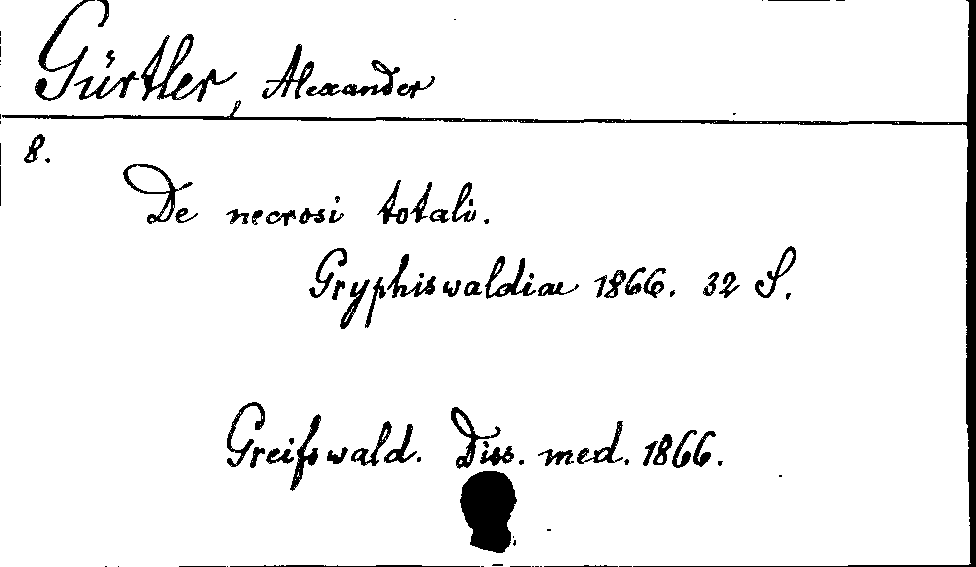 Gürtler, Alexander
8.
De necrosi totali.
Gryphiswaldiae 1866. 32 S.
Greifswald. Diss. med. 1866.